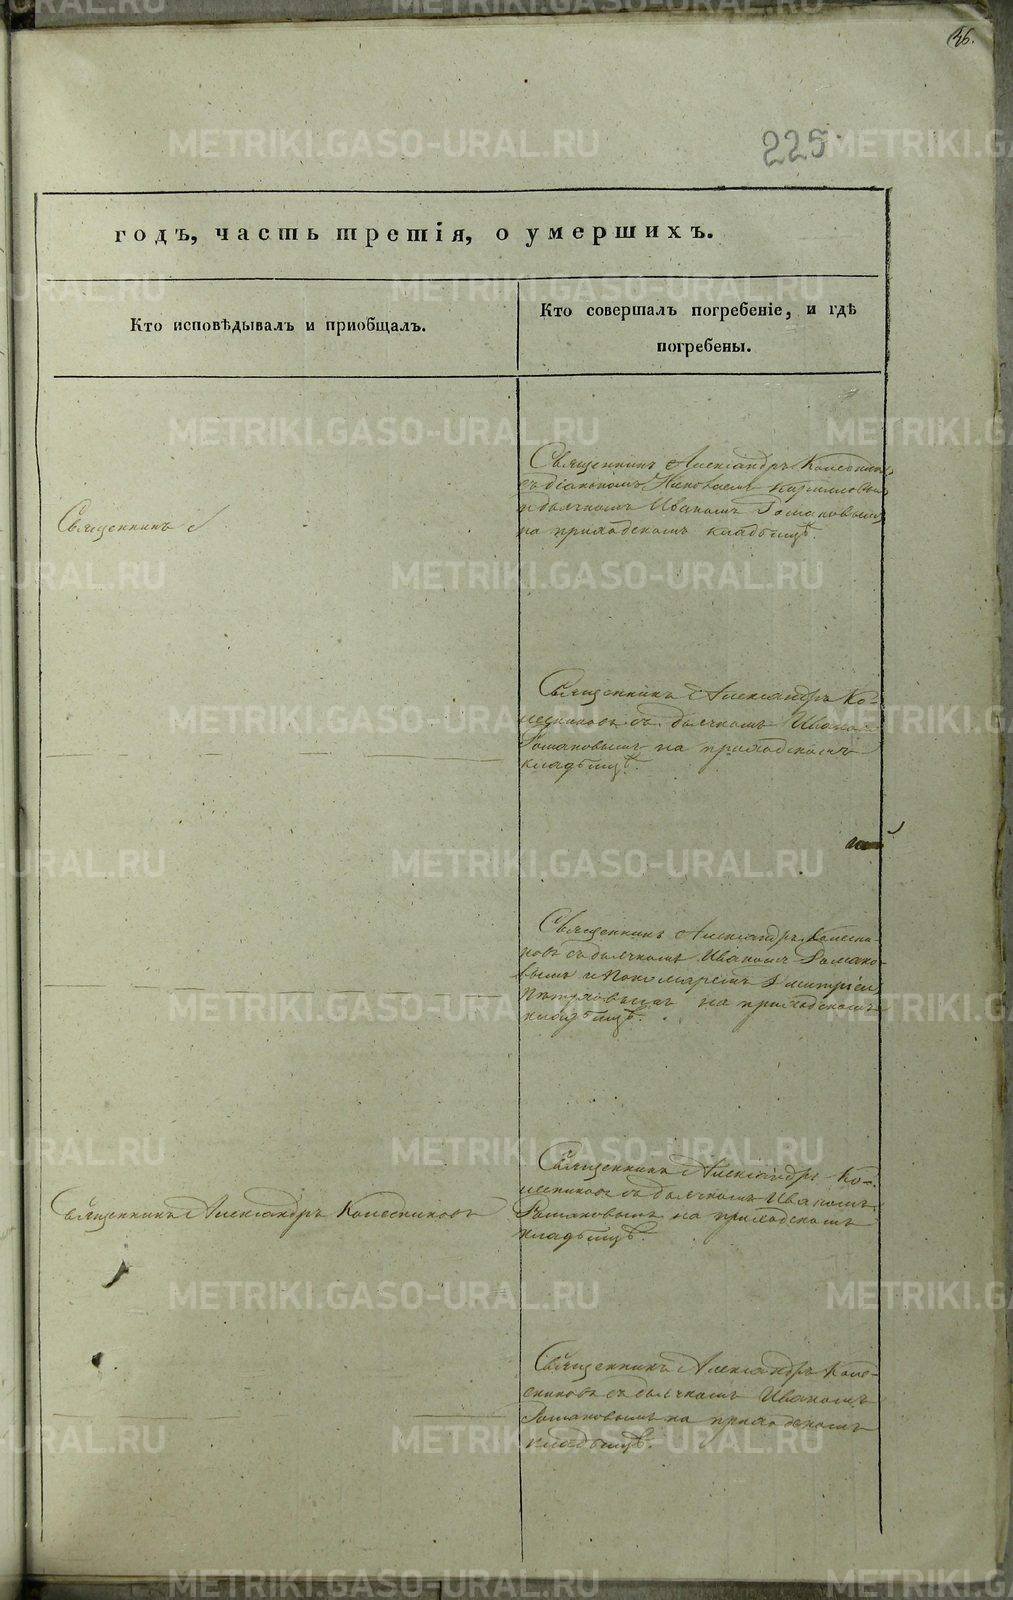 36.
225
годъ, часть третія, о умершихъ.
Кто исповѣдывалъ и приобщалъ.
Кто совершалъ погребеніе, и гдѣ
погребены.
Священникъ Александръ Колесник
съ діакономъ Николаемъ Кирилловым
и дьячкомъ Иваномъ Romановымъ
на приходскомъ кладбищѣ.
Священникъ А
Священникъ Александръ Ко-
лесниковъ съ дьячкомъ Иваномъ
Романовымъ на приходскомъ
кладбищѣ.
Священникъ Александръ Колесни-
ковъ съ дьячкомъ Иваномъ Романо-
вымъ и Пономаремъ Димитріем
на приходскомъ
кладбищѣ.
Священникъ Александръ Колесниковъ
Священникъ Александръ Ко-
лесниковъ съ дьячкомъ Иваномъ
Романовымъ на приходскомъ
кладбищѣ.
Священникъ Александръ Коле-
сниковъ съ дьячкомъ Иваномъ
Романовымъ на приходскомъ
кладбищѣ.
METRIKI.GASO-URAL.RU